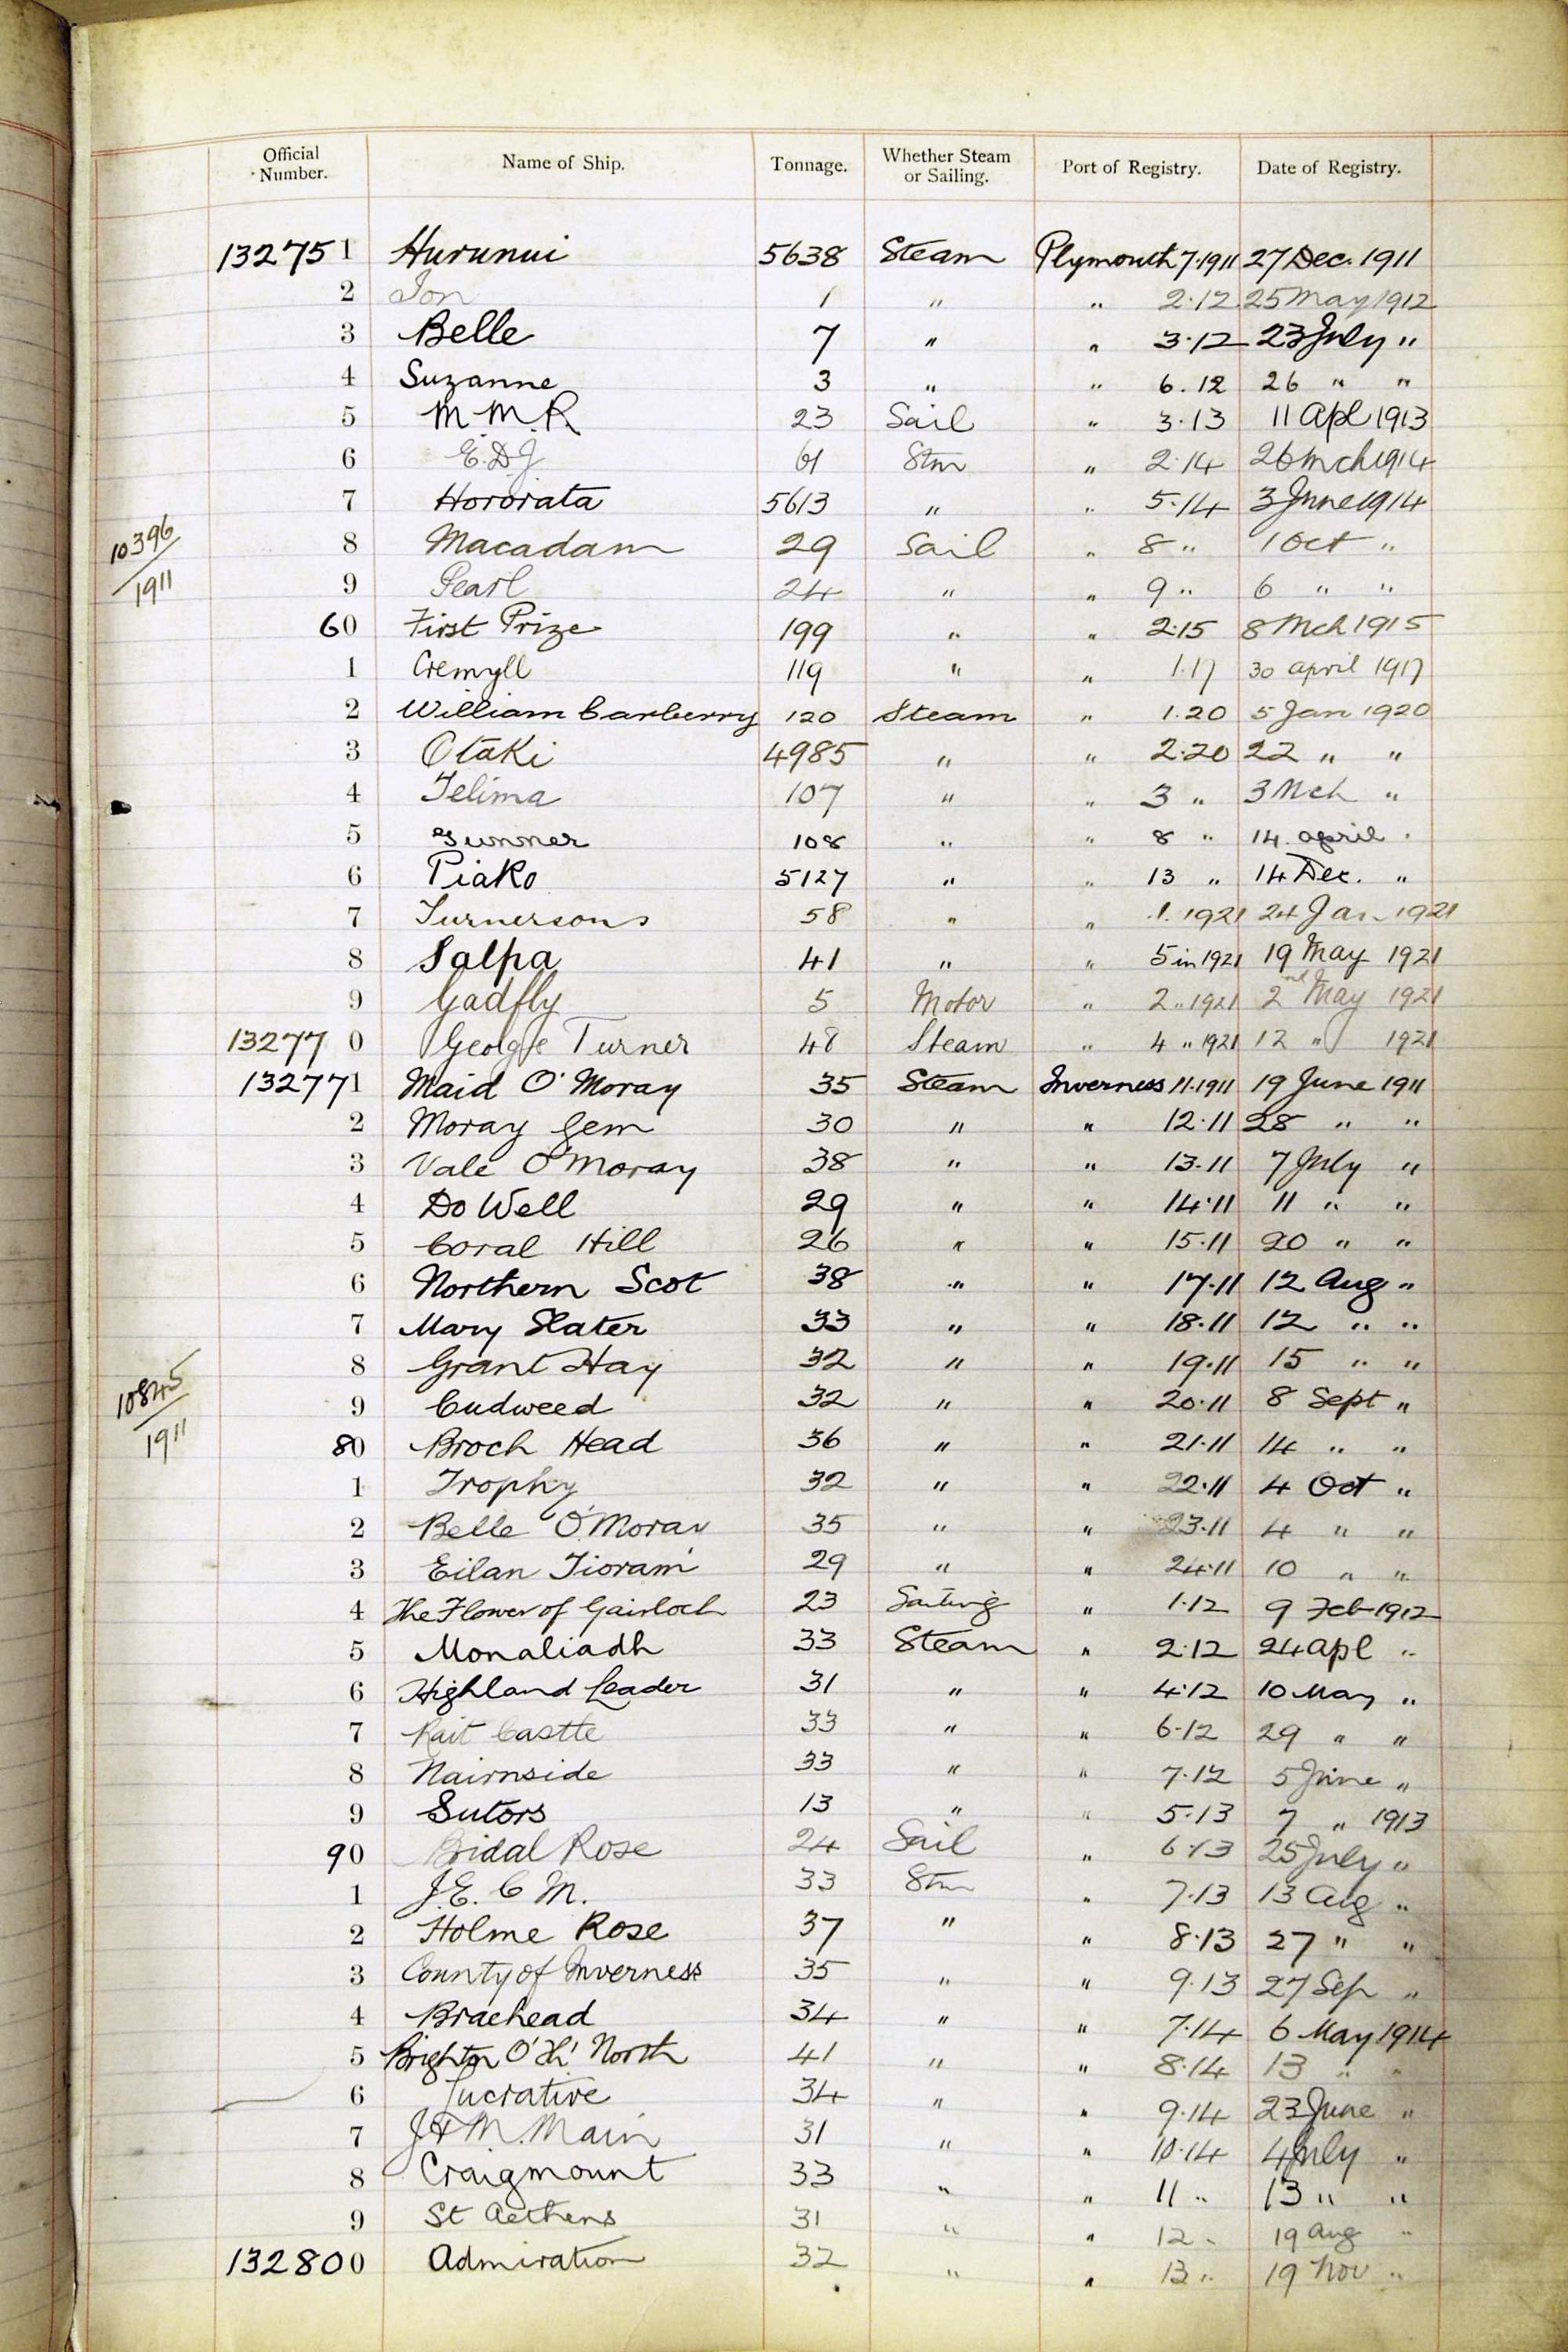 Official Number. Name of Ship. Tonnage. Whether Steam or Sailing. Port of Registry. Date of Registry.
132751 Hurunui 5638 Steam Plymouth 7.1911 27 Dec. 1911
2 Ion 1 " " 2.12 25 May 1912
3 Belle 7 " " 3.12 23 July "
4 Suzanne 3 " " 6.12 26 " "
5 M.M.R 23 Sail " 3.13 11 Apl 1913
6 E.D.J 61 Stm " 2.14 26 Mch 1914
7 Hororata 5613 " " 5.14 3 June 1914
10396/1911
8 Macadam 29 Sail " 8 " 1 Oct "
9 Pearl 24 " " 9 " 6 " "
60 First Prize 199 " " 2.15 8 Mch 1915
1 Cremyll 119 " " 1.17 30 april 1917
2 William Carberry 120 Steam " 1.20 5 Jan 1920
3 Otaki 4985 " " 2.20 22 " "
4 Telima 107 " " 3 " 3 Mch "
5 Gunner 108 " " 8 " 14 april "
6 Piako 5127 " " 13 " 14 Dec. "
7 Turnersons 58 " " 1.1921 24 Jan 1921
8 Salpa 41 " " 5 in 1921 19 May 1921
9 Gadfly 5 Motor " 2 " 1921 2nd May 1921
132770 George Turner 48 Steam " 4 " 1921 12 " 1921
132771 Maid O' Moray 35 Steam Inverness 11.1911 19 June 1911
2 Moray Gem 30 " " 12.11 28 " "
3 Vale O'Moray 38 " " 13.11 7 July "
4 Do Well 29 " " 14.11 11 " "
5 Coral Hill 26 " " 15.11 20 " "
6 Northern Scot 38 " " 17.11 12 Aug "
7 Mary Slater 33 " " 18.11 12 " "
8 Grant Hay 32 " " 19.11 15 " "
10845/1911
9 Cudweed 32 " " 20.11 8 Sept "
80 Broch Head 36 " " 21.11 14 " "
1 Trophy 32 " " 22.11 4 Oct "
2 Belle O'Moray 35 " " 23.11 4 " "
3 Eilan Tioram 29 " " 24.11 10 " "
4 The Flower of Gairloch 23 Sailing " 1.12 9 Feb 1912
5 Monaliadh 33 Steam " 2.12 24 Apl "
6 Highland Leader 31 " " 4.12 10 May "
7 Rait Castle 33 " " 6.12 29 " "
8 Nairnside 33 " " 7.12 5 June "
9 Sutors 13 " " 5.13 7 " 1913
90 Bridal Rose 24 Sail " 6.13 25 July "
1 J.E.C.M. 33 Stm " 7.13 13 Aug "
2 Holme Rose 37 " " 8.13 27 " "
3 County of Inverness 35 " " 9.13 27 Sep "
4 Braehead 34 " " 7.14 6 May 1914
5 O' Th' North 41 " " 8.14 13 " "
6 Lucrative 34 " " 9.14 23 June "
7 J & M. Main 31 " " 10.14 4 July "
8 Craigmount 33 " " 11 " 13 " "
9 St Aethans 31 " " 12 " 19 Aug "
132800 Admiration 32 " " 13 " 19 Nov "